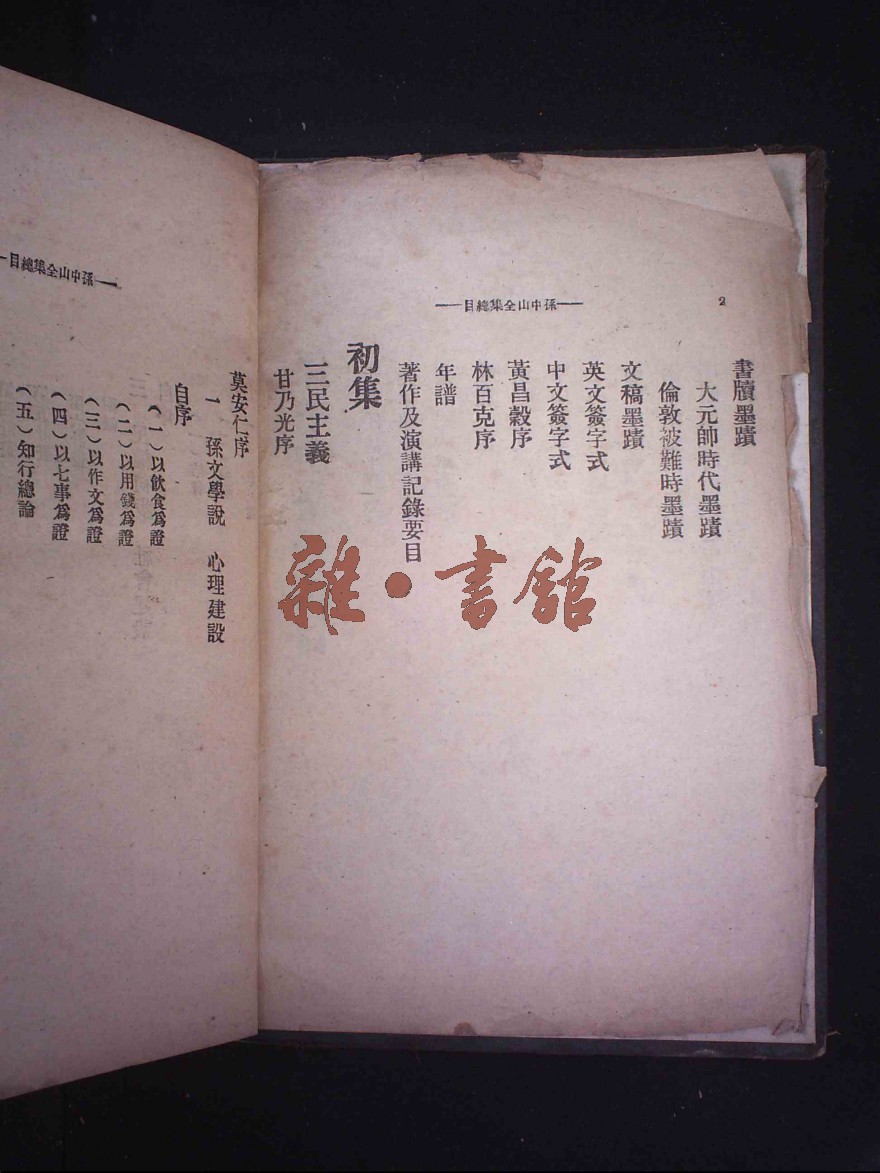 2
——孫中山全集總目——
書牘墨蹟
大元帥時代墨蹟
倫敦被難時墨蹟
文稿墨蹟
英文簽字式
中文簽字式
黃昌穀序
林百克序
年譜
著作及演講記錄要目
初集
三民主義
甘乃光序
——孫中山全集總目—
莫安仁序
一 孫文學說 心理建設
自序
(一)以飲食爲證
(二)以用錢爲證
(三)以作文爲證
(四)以七事爲證
(五)知行總論
雜·書館